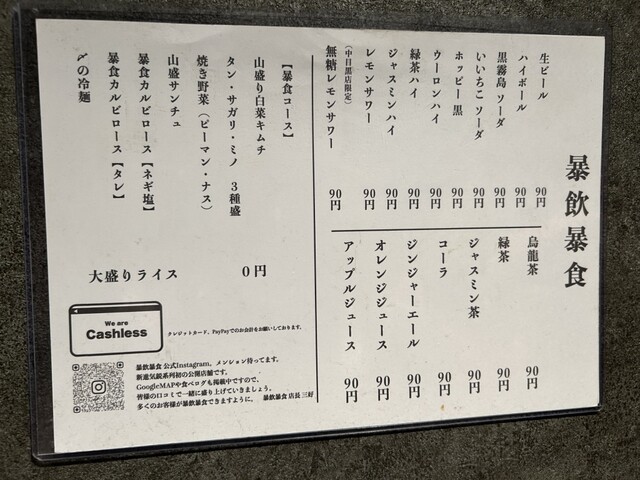 暴飲暴食
生ビール 90円
ハイボール 90円
黒霧島 ソーダ 90円
いいちこ ソーダ 90円
ホッピー 黒 90円
ウーロンハイ 90円
緑茶ハイ 90円
ジャスミンハイ 90円
レモンサワー 90円
(中目黒店限定)
無糖レモンサワー 90円
烏龍茶 90円
緑茶 90円
ジャスミン茶 90円
コーラ 90円
ジンジャーエール 90円
オレンジジュース 90円
アップルジュース 90円
【暴食コース】
山盛り白菜キムチ
タン・サガリ・ミノ 3種盛
焼き野菜（ピーマン・ナス）
山盛サンチュ
暴食カルビロース【ネギ塩】
暴食カルビロース【タレ】
〆の冷麺
大盛りライス 0円
We are
Cashless
クレジットカード、PayPayでのお会計をお願いしております。
暴飲暴食 公式Instagram、メンション待ってます。
新進気鋭系列初の公開店舗です。
GoogleMAPや食べログも掲載中ですので、
皆様の口コミで一緒に盛り上げていきましょう。
多くのお客様が暴飲暴食できますように。 暴飲暴食 店長 三好